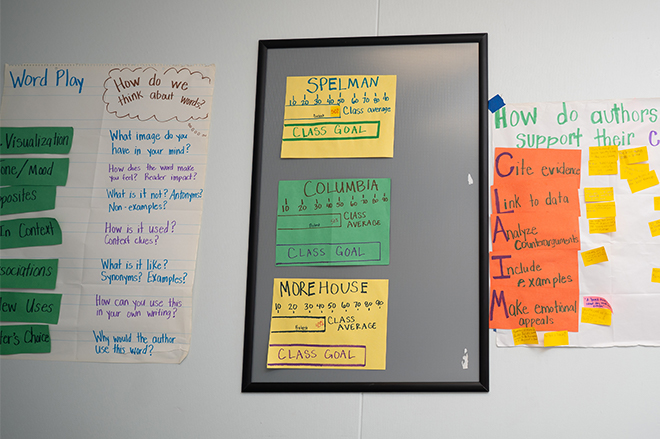 Word Play
How do we
think about words?
Visualization
What image do you
have in your mind?
one/Mood
How does the word make
you feel? Reader impact?
posites
What is it not? Antonyms?
Non-examples?
In Context
How is it used?
Context clues?
sociations
What is it like?
Synonyms? Examples?
New Uses
How can you use this
in your own writing?
er's Choice
Why would the author
use this word?
SPELMAN
10 20 30 40 50 60 70 80 90
Class average
CLASS GOAL
COLUMBIA
10 20 30 40 50 60 70 80 90
CLASS
AVERAGE
CLASS GOAL
MOREHOUSE
10 20 30 40 50 60 70 80 90
CLASS
AVERAGE
CLASS GOAL
How do authors
support their C
Cite evidence
Link to data
Analyze
Counterarguments
Include
examples
Make emotional
appeals